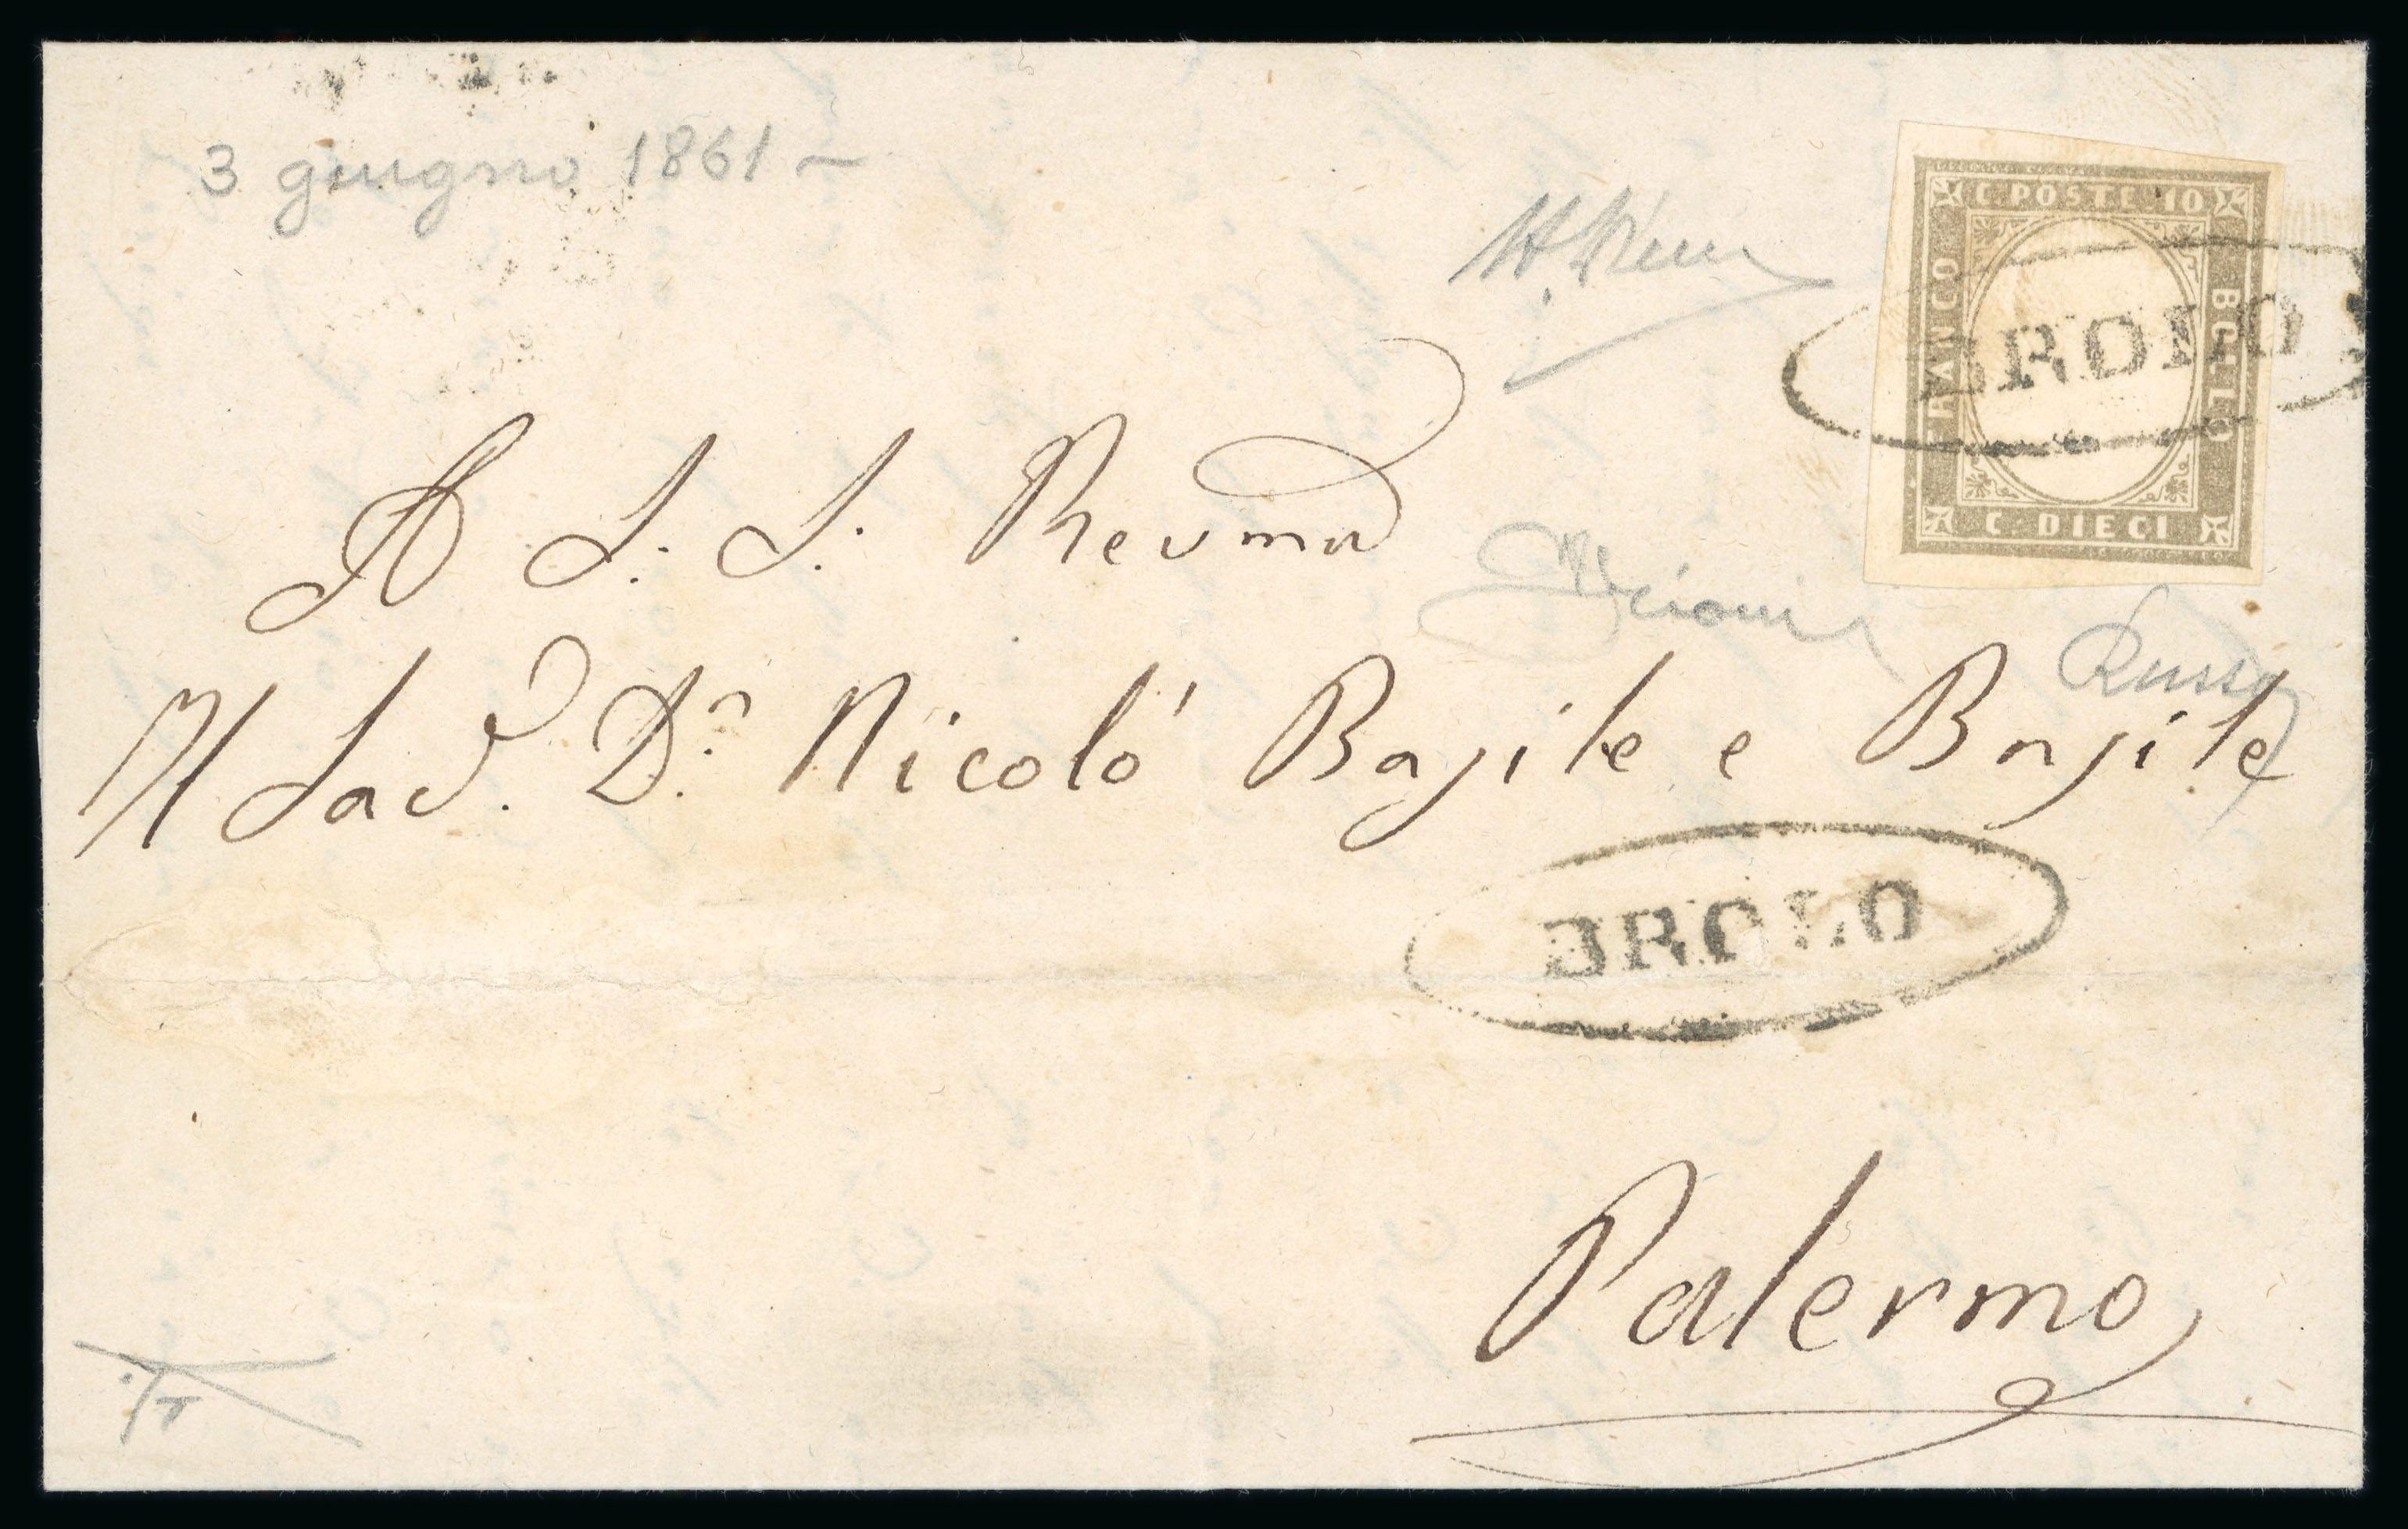 3 giugno 1861
C. POSTE 10
FRANCO
BOLLO
C. DIECI
BROLO
A S. S. Revma
Russo
Nicolò Basile e Basile
BROLO
Palermo